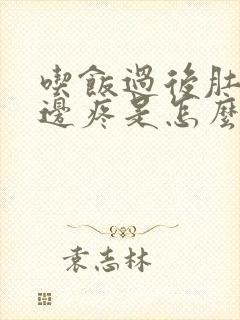 喫飯過後肚
邊疼是怎麼
袁志林